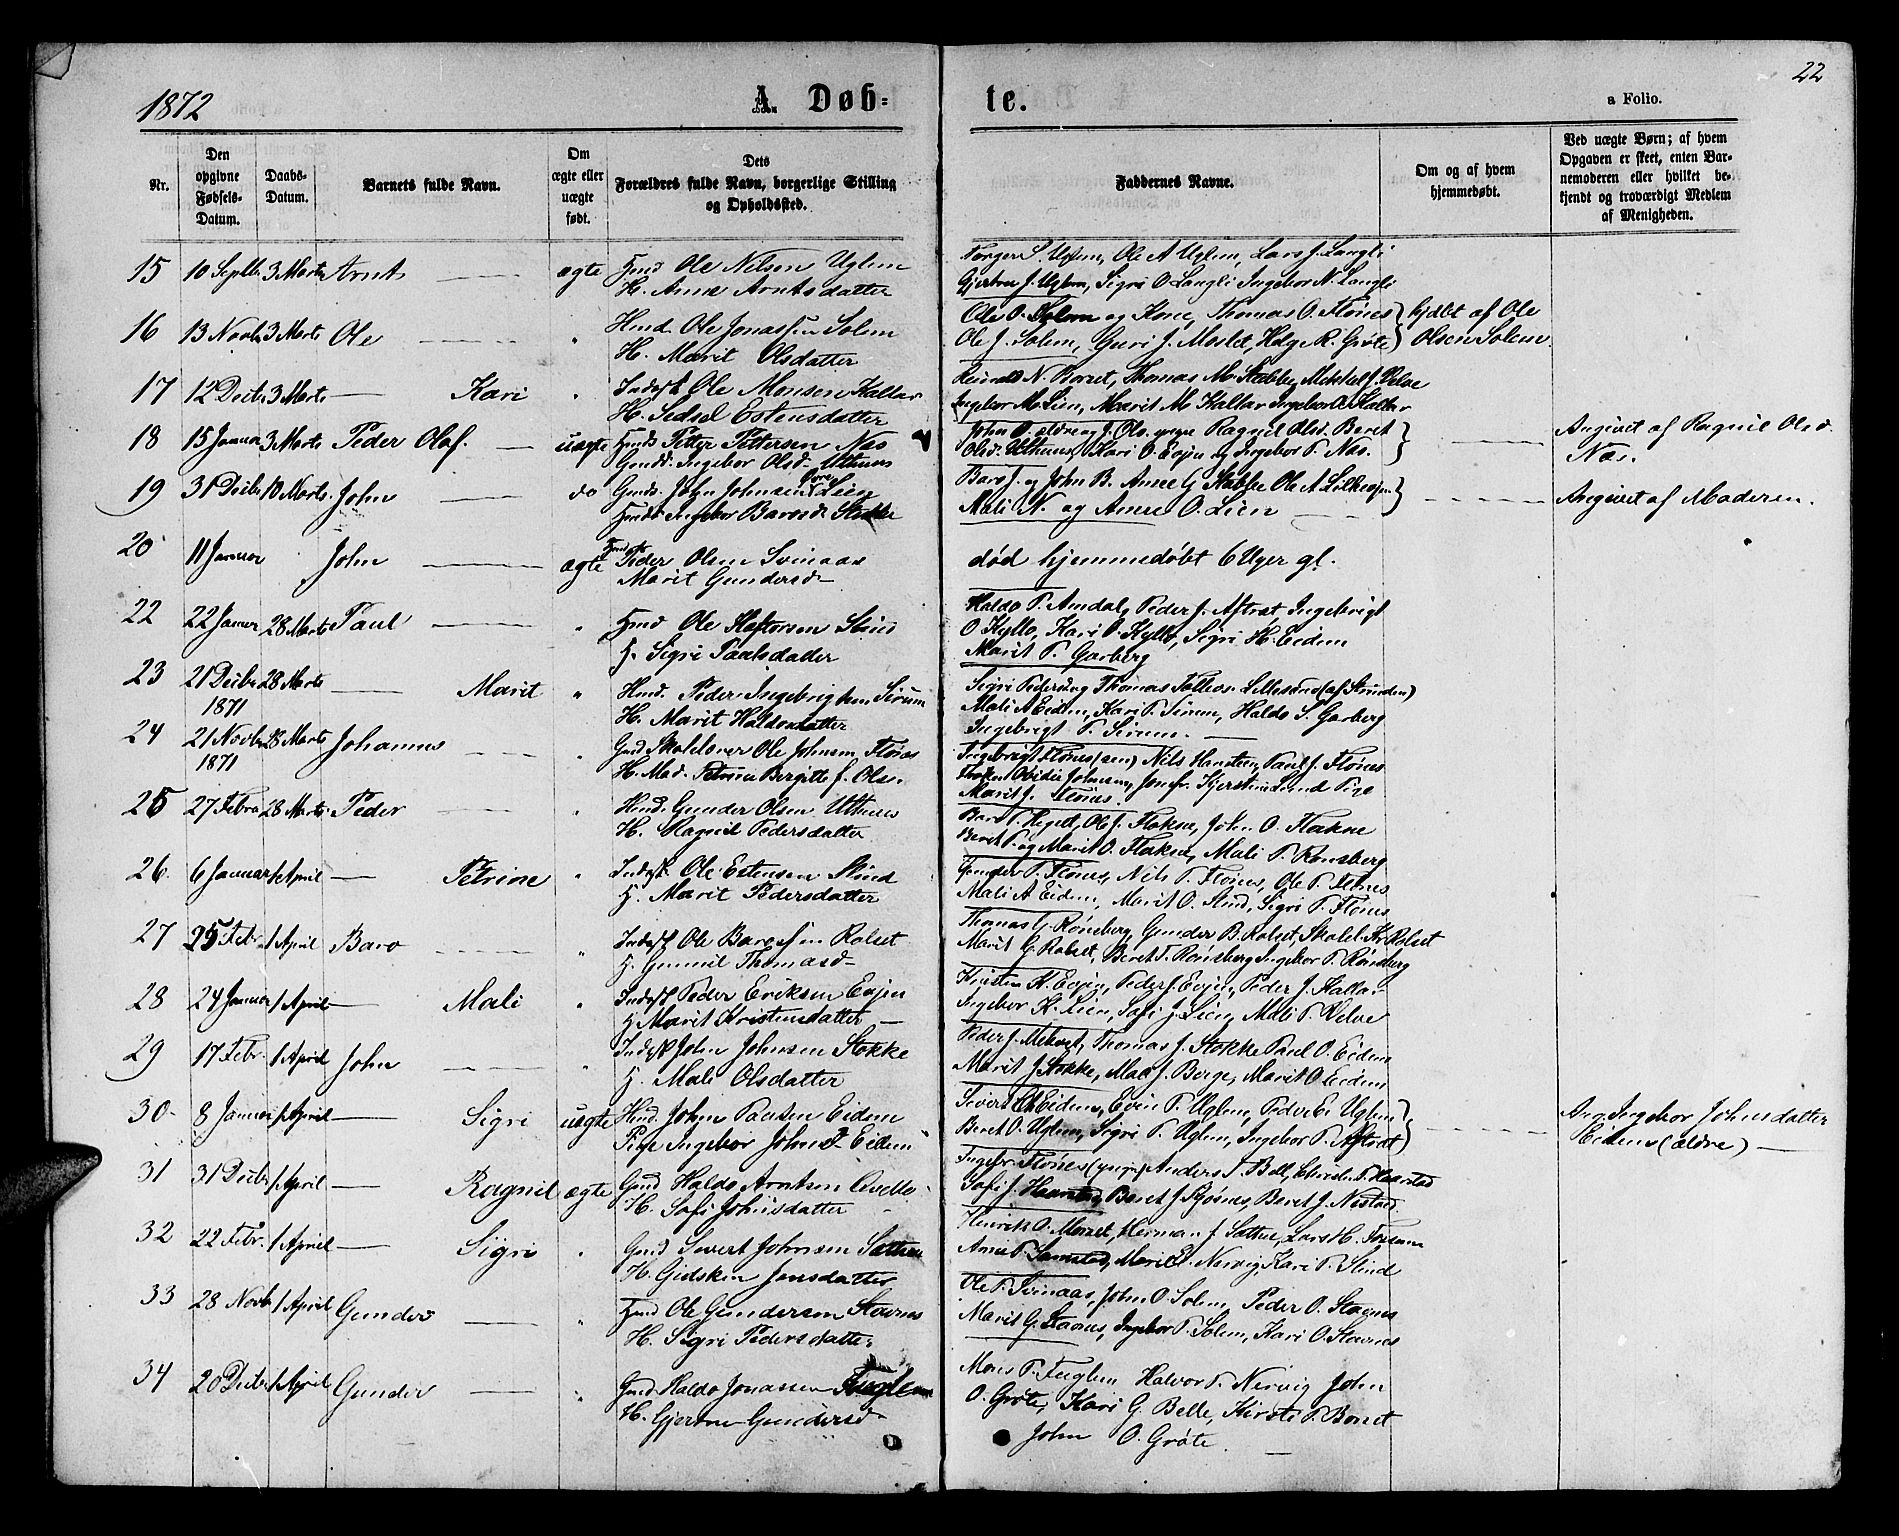 1872
A. Døb-
te.
a Folio.
22
Nr.
Den
opgivne
Fødsels-
Datum.
Daabs-
Datum.
Barnets fulde Navn.
Om
ægte eller
uægte
født.
Dets
Forældres fulde Navn, borgerlige Stilling
og Opholdssted.
Faddernes Navne.
Om og af hvem
hjemmedøbt.
Ved uægte Børn; af hvem
Opgaven er skeet, enten Bar-
nemoderen eller hvilket be-
kjendt og troværdigt Medlem
af Menigheden.
15 10 Septbr 3 Marts Arnt ægte Hmd Ole Nilsen Uglem
H. Anne Arntsdatter
S. Uglem, Ole A Uglem, Lars J. Langli
J. Uglem, Sigri O Langli Ingebor N. Langli
16 13 Novbr 3 Marts Ole " Hmd. Ole Jonassen Solem
H. Marit Olsdatter
Ole O. Solem og Kone, Thomas O. Flønes
Ole J. Solem, Guri J. Moslet, Helge R. Grøte
hjdbt af Ole
Olsen Solem
17 12 Decbr 3 Marts Kari " Inderst Ole Monsen Kallar
H. Sedsel Estensdatter
N. Borset, Thomas M. Stubbe, Mikkel J. Velve
Ingebor M. Lien, Marit M Kallar Ingebor O. Kallar
18 15 Januar 3 Marts Peder Olaf. uægte Petter Pettersen Næs
Ingebor Olsd. Uthuus
John O. ældre og J. Ols. yngre Ragnil Olsd. Beret
Olsd. Uthuus, Kari O. Evjen og Ingebor P. Næs.
Angivet af Ragnil Olsd.
Næs.
19 31 Decbr 10 Marts. John do Gmds. John Johnsen Lien
Ingebor Baroesd. Stokke
Baro J. og John B. Anne G Stokke Ole A Lilleevjen
Mali N. og Anne O. Lien
Angivet af Moderen.
20 11 Januar John ægte Peder Olsen Svinaas
Marit Gundersd
død hjemmedøbt 6 Uger gl.
22 22 Januar 28 Marts Paul " Hmd Ole Haftorsen Slind
H. Sigri Paulsdatter
Haldo P. Amdal, Peder J. Aftrøt, Ingebrigt
O Kyllo, Kari O. Kyllo, Sigri H. Eidem
Marit P. Garberg
23 21 Decbr 28 Marts Marit " Hmd. Peder Ingebrigtsen Sirum
1871
H. Marit Haldosdatter
Sigri Pedersd og Thomas Lillesand (af Stranden)
Mali A Eidem, Kari P. Sirum, Haldo S. Garberg
Ingebrigt P. Sirum.
24 21 Novbr 28 Marts Johannes " Gmd Skolelærer Ole Johnsen Flønes
1871
H. Mad. Petrine Bergitte f. Olsn.
Ingebrigt Flønes (sen) Nils Hansten, Paul J. Flønes
Marit J. Flønes.
25 27 Februar 28 Marts Peder " Hmd. Gunder Olsen Uthuus
H. Ragnil Pedersdatter
Baro P. Heget, Ole J. Flaksne, John O. Flakne
Beret P. og Marit O. Flakne, Mali P. Rønsberg
26. 6 Januar 1 April Petrine " Inderst Ole Estensen Slind
H. Marit Pedersdatter
Gunder P. Flønes, Nils P. Flønes, Ole P. Flønes
Mali A Eidem, Marit O. Slind, Sigri P. Flønes
27 25 Febr. 1 April Baro " Inderst Ole Baroesen Rolset
H. Gunnil Thomasd
Thomas G. Rønsberg, Gunder B. Rolset, Skolel. Kr. Rolset
Marit G. Rolset, Beret T. Rønsberg Ingebor T. Rønsberg
28 24 Januar 1 April Mali " Inderst Peder Eriksen Evjen
H. Marit Kristensdatter
Kristen K. Evjen, Peder J. Evjen, Peder J. Kallar
Ingebor K. Lien, Sofi J. Lien, Mali P. Velve
29 17 Febr. 1 April John " Inderst John Johnsen Stokke
H. Mali Olsdatter
Peder J. Melvet, Thomas J. Stokke Paul O. Eidem
Marit J Stokke, Mali J. Berge, Marit O Eidem
30 8 Januar 1 April Sigri uægte Hmd. John Paulsen Eidem
Pige Ingebor Johnsd. Eidem
Sivert O Eidem, Even P. Uglem, Peder E. Uglem
Beret O. Uglem, Sigri P. Uglem, Ingebor P. Aftrøt
Ang. Ingebor Johnsdatter
Eidem (ældre)
31 31 Decbr 1 April Ragnil ægte Gmd Haldo Arntsen Avelle
H. Sofi Johnsdatter
Ingebr. Flønes (yngre) Anders T. Bell, P. Haarstad
Sofi J. Haarstad, Beret J. Kjøsnes, Beret J. Nestad
32 22 Febr. 1 April Sigri " Gmd Sivert Johnsen Sæther
H. Gidsken Jonsdatter
Henrik O. Morset, Herman J. Sæther, Lars H. Fossum
Arne P. Samstad, Marit E. Nervig, Kari P. Slind
33 28 Novbr 1 April Gunder " Hmd Ole Gundersen Stavnes
H. Sigri Pedersdatter
Ole P. Svinaas, John O. Solem, Peder O. Stavnes
Marit G. Stavnes, Ingebor P. Solem, Kari O. Stavnes
34 20 Decbr 1 April Gunder " Gmd. Haldo Jonassen Fuglem
H. Gjertru Gundersd
Mons P. Fuglem Halvor P. Nervig John
O. Grøte, Kari G. Belle, Kirsti P. Borset
John O. Grøte.